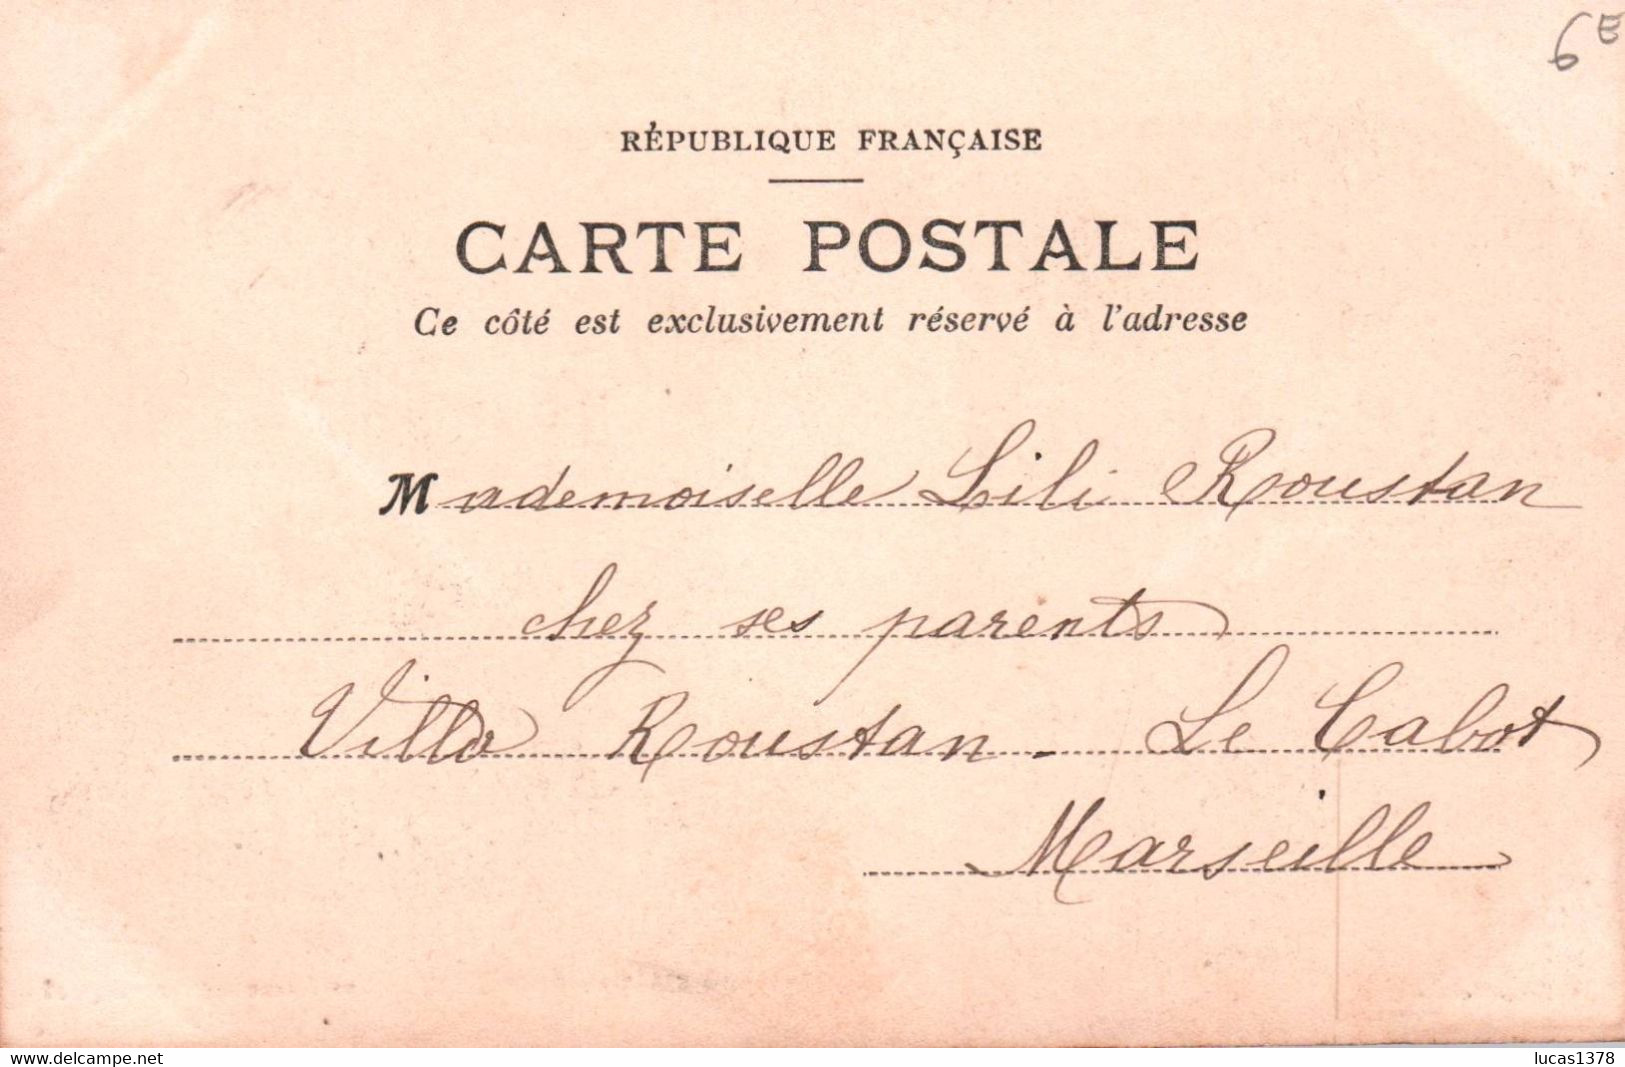 6E
RÉPUBLIQUE FRANÇAISE
CARTE POSTALE
Ce côté est exclusivement réservé à l'adresse
Mademoiselle Lili Roustan
chez ses parents
Villa Roustan - Le Cabot
Marseille
www.delcampe.net
lucas1378